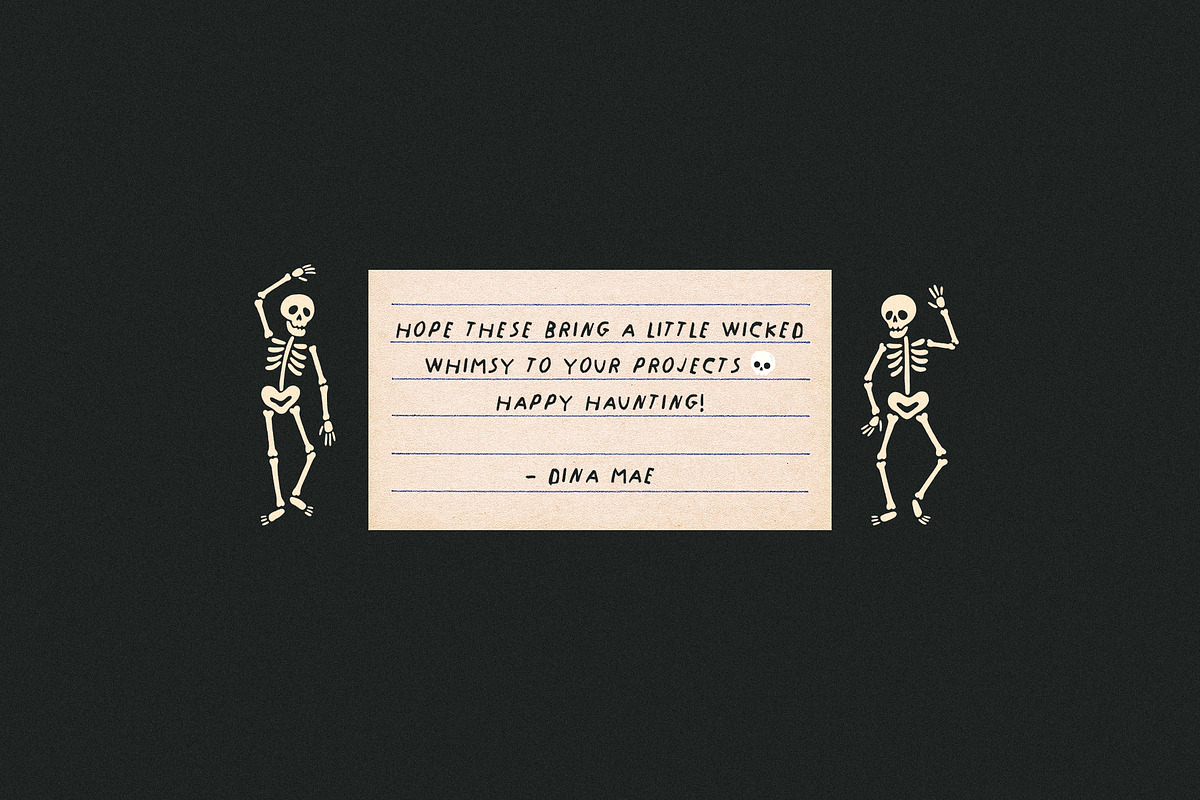 HOPE THESE BRING A LITTLE WICKED
WHIMSY TO YOUR PROJECTS 💀
HAPPY HAUNTING!
- DINA MAE